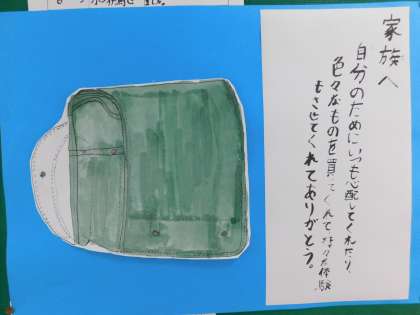 家族へ
自分のためにいつも心配してくれたり、
色々なものを買ってくれて様々な体験
もさせてくれてありがとう。